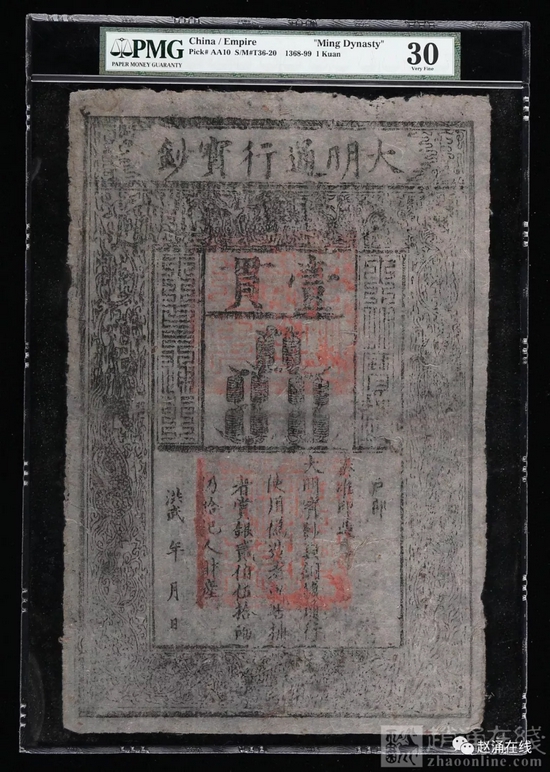 PMG
PAPER MONEY GUARANTY
China / Empire "Ming Dynasty"
Pick# AA10 S/M#T36-20 1368-99 1 Kuan
30
Very Fine
大明通行寶鈔
壹貫
戶部
奏准印造
大明寶鈔與銅錢通行
使用偽造者斬告捕
者賞銀貳伯伍拾兩
仍給犯人財產
洪武 年 月 日
赵涌在线
zhaoonline.com
赵涌在线